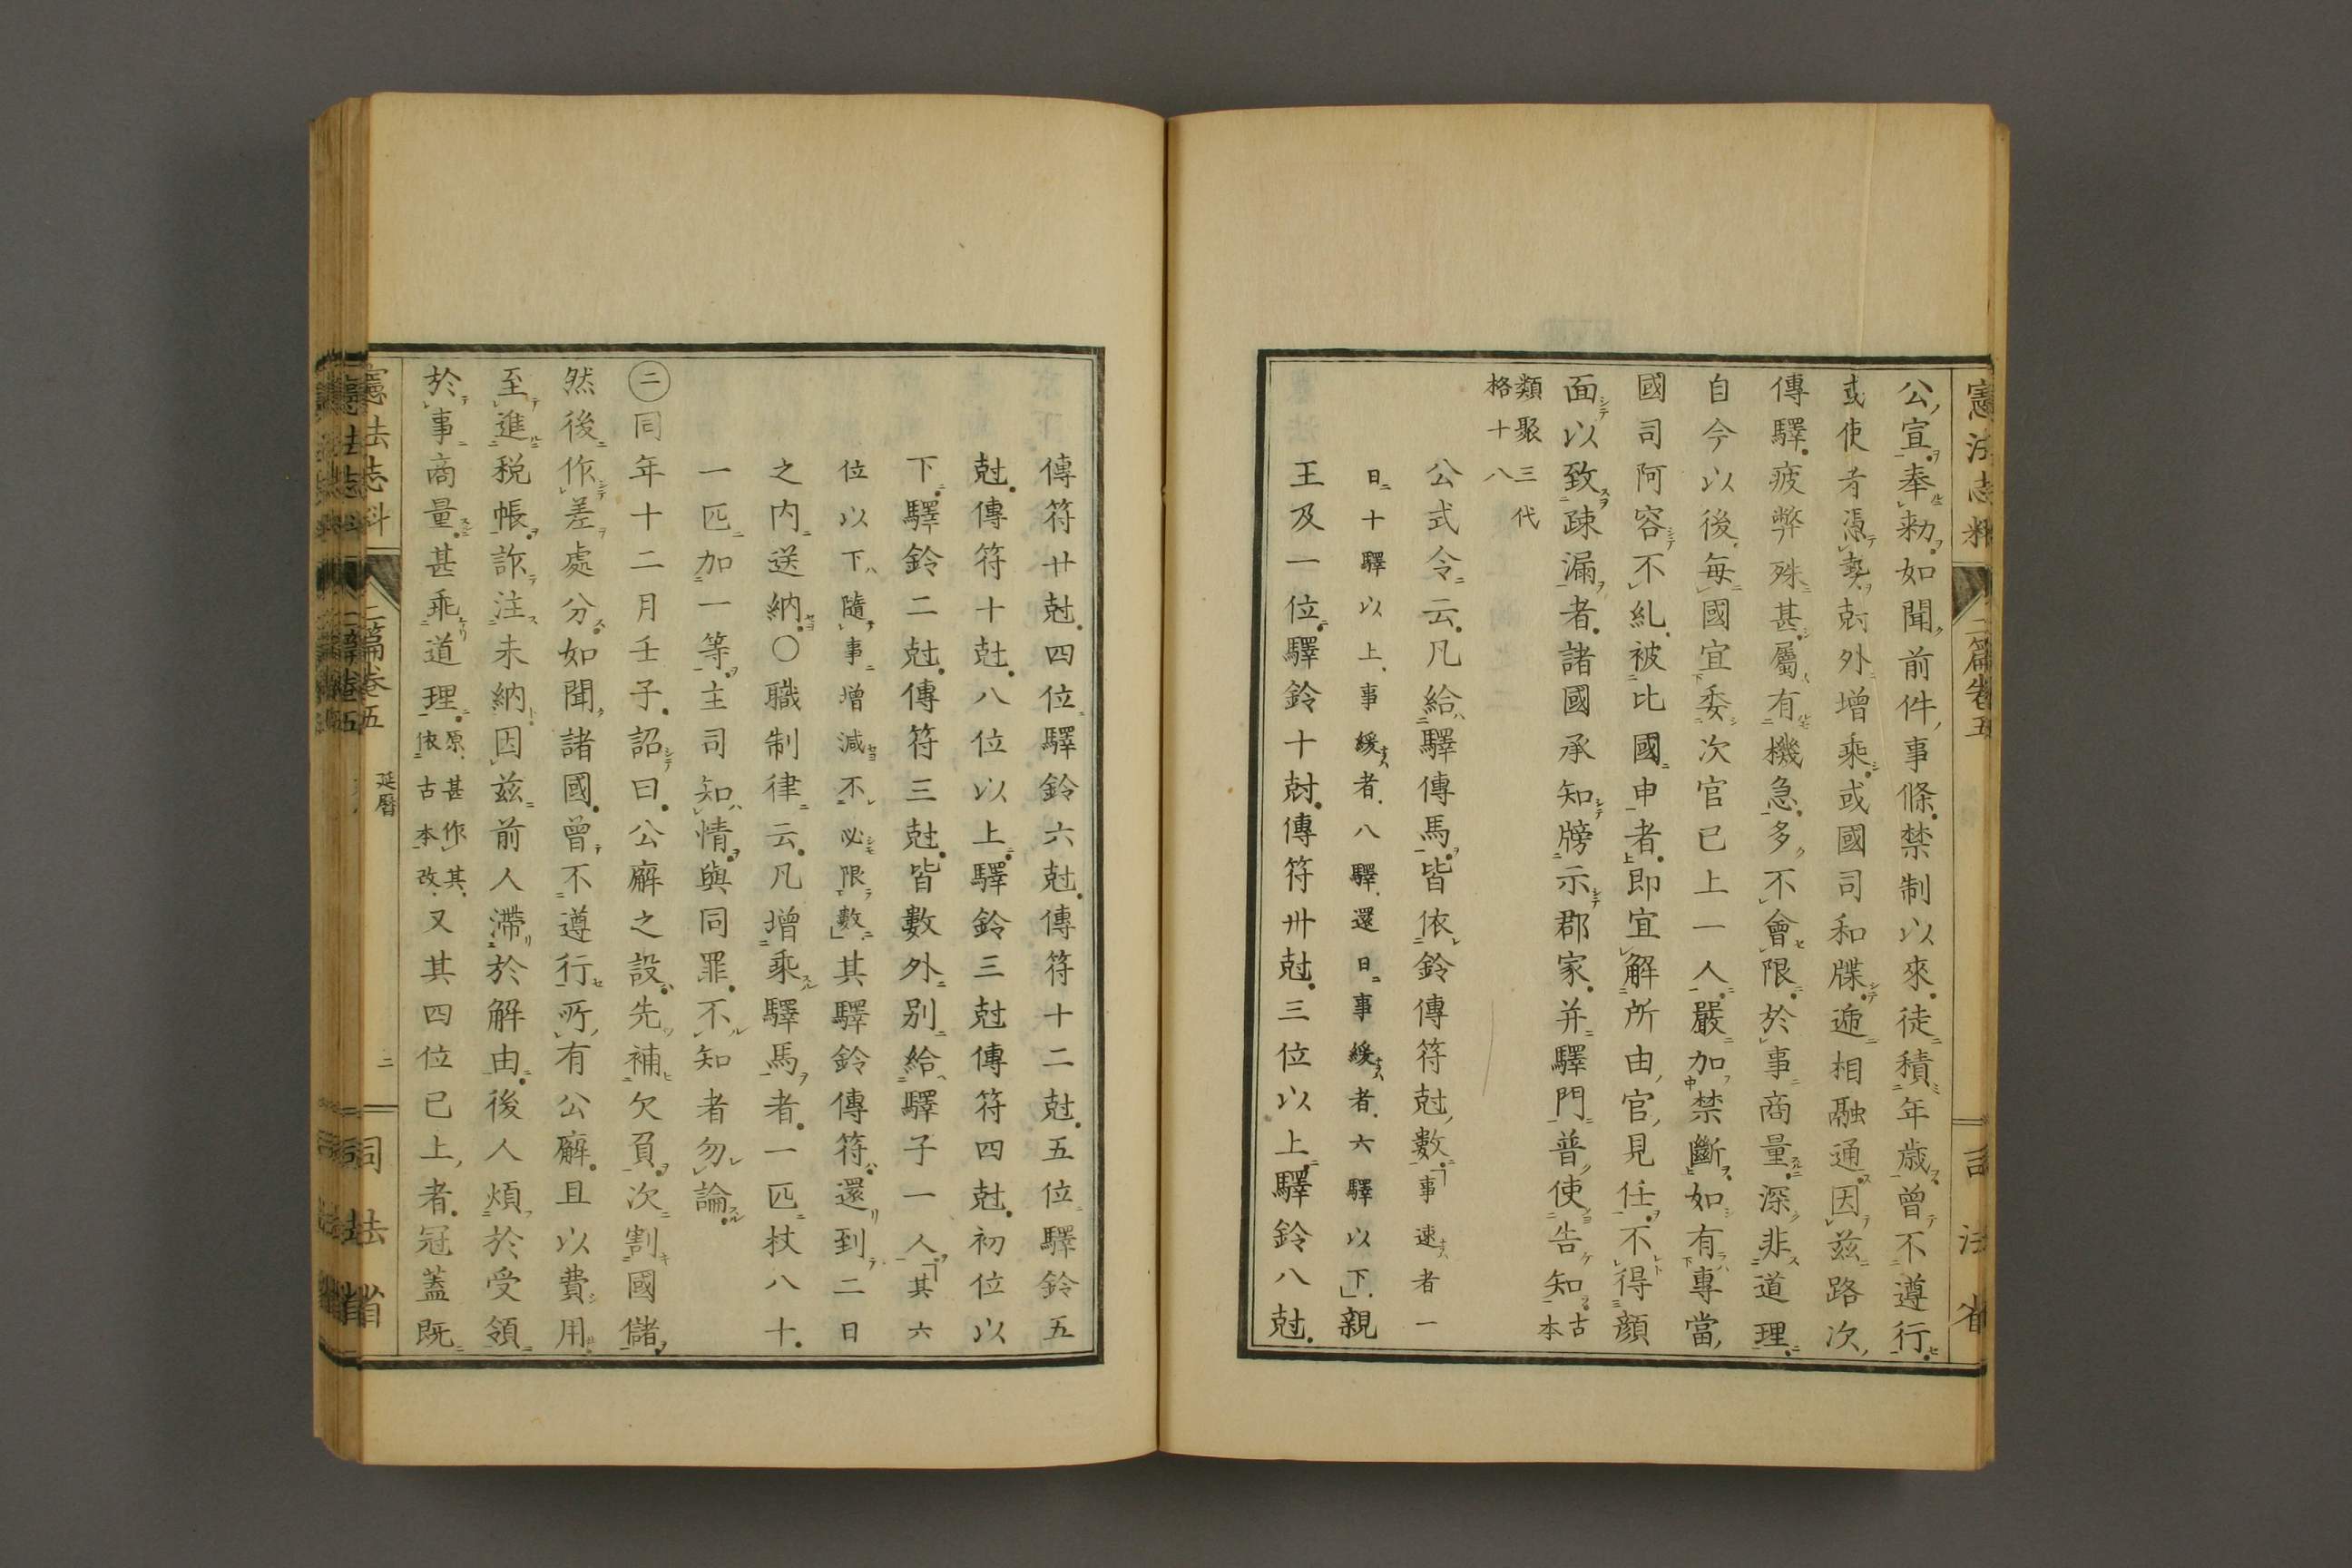 憲法志料 二篇卷五 司法省
公宣奉勅如聞前件事條禁制以來徒積年歲曾不遵行
或使者憑契尅外增乘或國司和牒遞相融通因茲路次
傳驛疲弊殊甚屬有機急多不會限於事商量深非道理
自今以後每國宜委次官已上一人嚴加禁斷如有專當
國司阿容不糺被比國申者即宜解所由官見任不得顏
面以致疎漏者諸國承知牓示郡家并驛門普使告知古本
類聚三代
格十八
公式令云凡給驛傳馬皆依鈴傳符尅數事速者一
日十驛以上事緩者八驛還日事緩者六驛以下親
王及一位驛鈴十尅傳符卅尅三位以上驛鈴八尅
傳符廿尅四位驛鈴六尅傳符十二尅五位驛鈴五
尅傳符十尅八位以上驛鈴三尅傳符四尅初位以
下驛鈴二尅傳符三尅皆數外別給驛子一人其六
位以下隨事增減不必限數其驛鈴傳符還到二日
之內送納〇職制律云凡增乘驛馬者一匹杖八十
一匹加一等主司知情與同罪不知者勿論
㊁同年十二月壬子詔曰公廨之設先補欠負次割國儲
然後作差處分如聞諸國曾不遵行所有公廨且以費用
至進稅帳詐注未納因茲前人滯於解由後人煩於受領
於事商量甚乖道理原甚作其依古本改又其四位已上者冠蓋既
憲法志料 二篇卷五 延曆 二 司法省